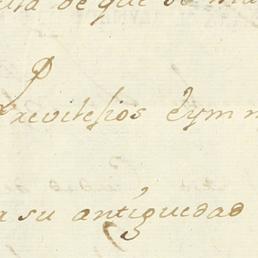 de que se
Previlesios Eymm
a su antiguedad